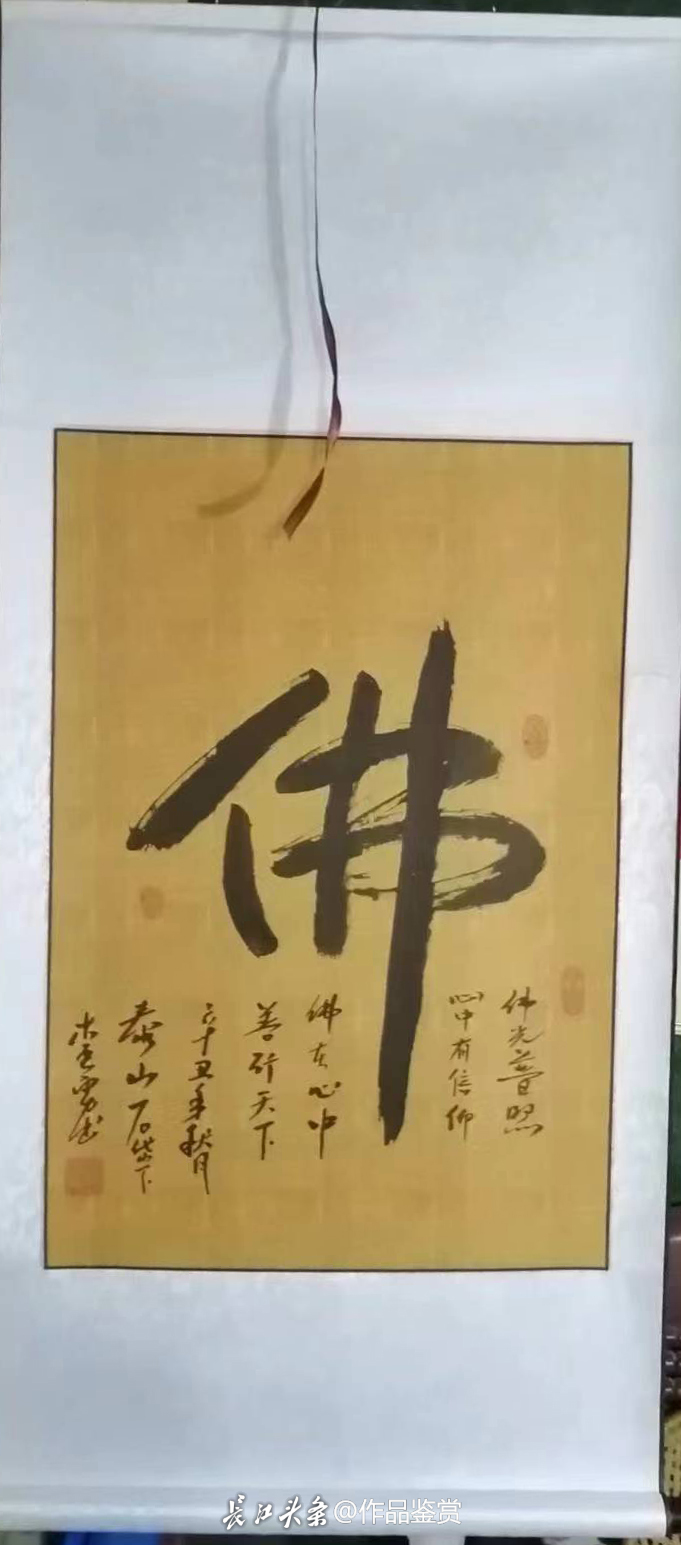 佛
佛光普照
心中有信仰
佛在心中
善行天下
丑年秋月
泰山石岱下
长江头条@作品鉴赏